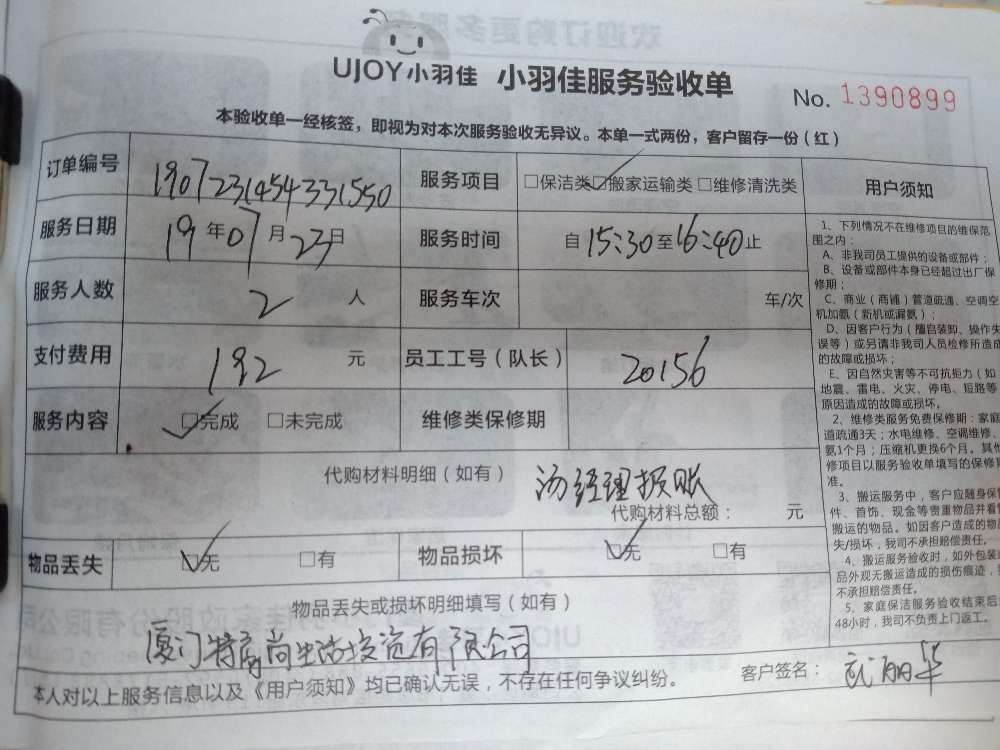 UJOY小羽佳 小羽佳服务验收单
No. 1390899
本验收单一经核签，即视为对本次服务验收无异议。本单一式两份，客户留存一份（红）
订单编号 1907231454331550 服务项目 □保洁类 ☑搬家运输类 □维修清洗类
服务日期 19年07月23日 服务时间 自15:30至16:40止
服务人数 2人 服务车次 车/次
支付费用 192元 员工工号（队长） 20156
服务内容 ☑完成 □未完成 维修类保修期
代购材料明细（如有）
汤经理 账
代购材料总额： 元
物品丢失 ☑无 □有 物品损坏 ☑无 □有
物品丢失或损坏明细填写（如有）
厦门特 尚生活投资有限公司
本人对以上服务信息以及《用户须知》均已确认无误，不存在任何争议纠纷。 客户签名： 丽华
用户须知
1、下列情况不在维修项目的维保范
围之内：
A、非我司员工提供的设备或部件；
B、设备或部件本身已经超过出厂保
修期；
C、商业（商铺）管道疏通、空调空
机加氨（新机或漏氨）；
D、因客户行为（擅自装卸、操作失
误等）或另请非我司人员检修所造成
的故障或损坏；
E、因自然灾害等不可抗拒力（如
地震、雷电、火灾、停电、短路等
原因造成的故障或损坏。
2、维修类服务免费保修期：家庭
道疏通3天；水电维修、空调维修、
氨1个月；压缩机更换6个月。其他
修项目以服务验收单填写的保修
准。
3、搬运服务中，客户应随身保管
件、首饰、现金等贵重物品并看管
搬运的物品。如因客户造成的物
失/损坏，我司不承担赔偿责任。
4、搬运服务验收时，如外包装
品外观无搬运造成的损伤痕迹，
不承担赔偿责任。
5、家庭保洁服务验收结束后
48小时，我司不负责上门返工。